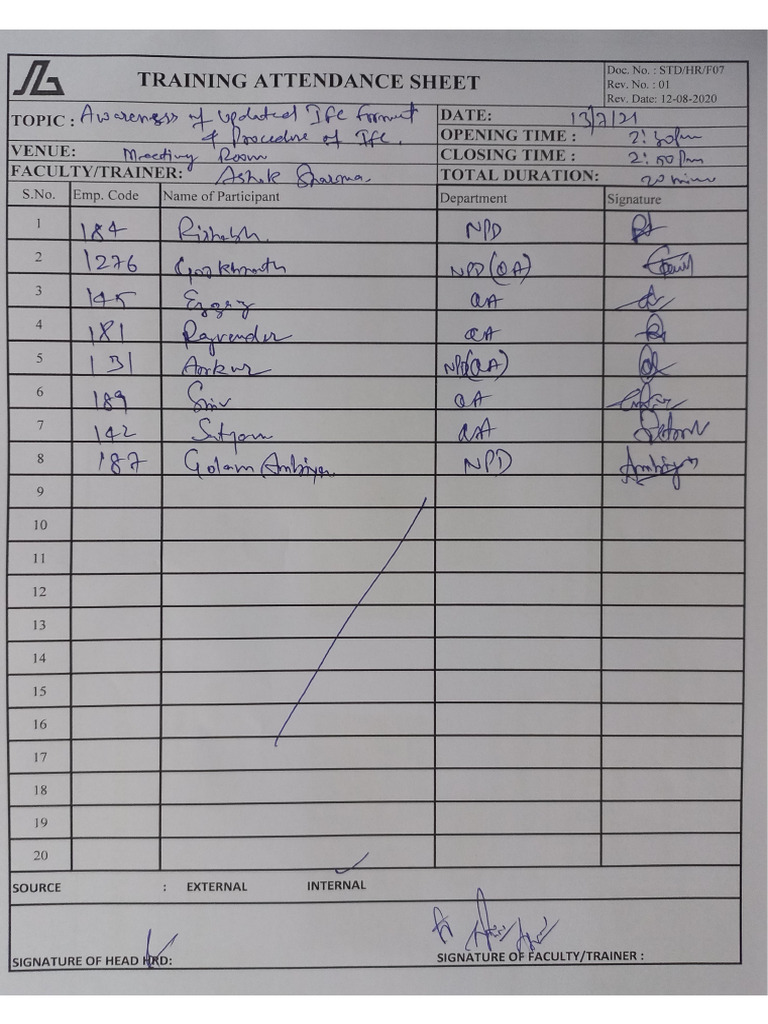 TRAINING ATTENDANCE SHEET
Doc. No. : STD/HR/F07
Rev. No. : 01
Rev. Date: 12-08-2020
TOPIC : Awareness of updated IFC Format
& Procedure of IFC.
DATE: 13/7/21
OPENING TIME : 2:30pm
VENUE: Meeting Room
CLOSING TIME : 2:50 Pm
FACULTY/TRAINER: Ashok Sharma.
TOTAL DURATION: 20 mins
S.No. Emp. Code Name of Participant Department Signature
1 184 Rishabh. NPD
2 1276 Gorakhnath NPD(QA)
3 145 QA
4 181 Rajvender QA
5 131 Ankur NPD(QA)
6 189 QA
7 142 Satyam QA
8 187 Golam Ambiya. NPD Ambiya
9
10
11
12
13
14
15
16
17
18
19
20
SOURCE : EXTERNAL INTERNAL
SIGNATURE OF HEAD HRD:
SIGNATURE OF FACULTY/TRAINER :